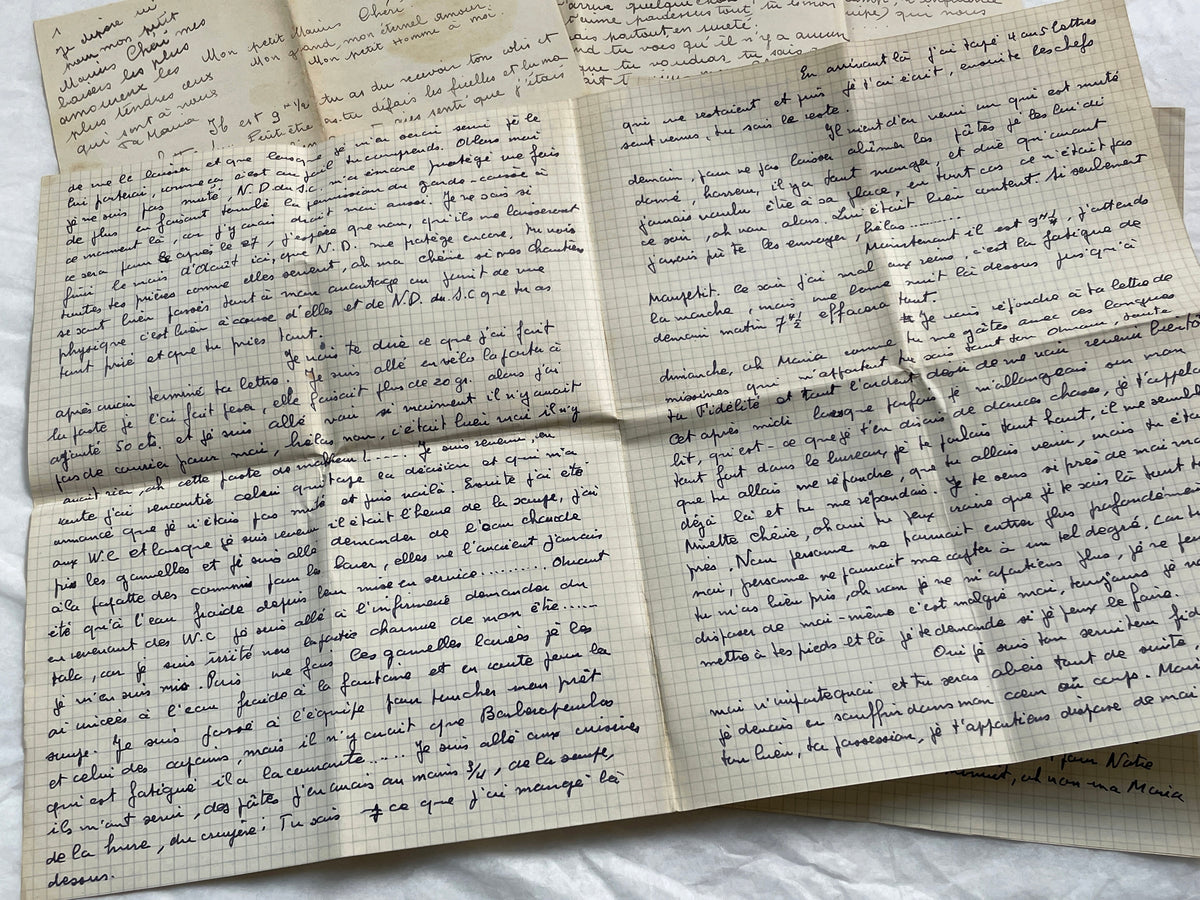 1
Je depose ici
pour mon petit
Marius Chéri mes
baisers les plus
amoureux les
plus tendres ceux
qui sont à nous
Ta Maria
Mon petit Marius Chéri
Mon grand, mon éternel amour.
Mon petit Homme à moi.
Il est 9 h 1/2
tu as du recevoir ton colis et
défais les ficelles et la ma
senti que j'étais
Peut-être
arrive quelque cho
t'aime par dessus tout, tu
mais partout en sureté.
nd tu vois qu'il n'y a aucun
que tu voudras, tu sais
qui nous
de me le laisser et que lorsque je m'en serai servi je le
lui porterai, comme ça c'est au poil tu comprends. Alors moi
je ne suis pas muté, N.D. du S.C. m'a encore protégé une fois
de plus en faisant tombé la permission du garde-caisse à
ce moment là, car j'y aurai droit moi aussi. Je ne sais si
ce sera pour le après le 27, j'espère que non, qu'ils me laisseront
finir le mois d'Août ici, que N.D. me protège encore. Tu vois
toutes tes prières comme elles servent, ah ma chérie si mes chantiers
se sont bien passés tant à mon avantage au point de vue
physique c'est bien à cause d'elles et de N.D. du S.C que tu as
tant prié et que tu pries tant.
Je vais te dire ce que j'ai fait
après avoir terminé ta lettre. Je suis allé en vélo la porter à
la poste je l'ai fait peser, elle faisait plus de 20 gr. alors j'ai
ajouté 50 cts. et je suis allé voir si vraiment il n'y avait
pas de courrier pour moi, hélas non, c'était bien vrai il n'y
avait rien, ah cette poste de malheur !..... Je suis revenu, en
route j'ai rencontré celui qui tape la décision et qui m'a
annoncé que je n'étais pas muté et puis voilà. Ensuite j'ai été
aux W.C et lorsque je suis revenu il était l'heure de la soupe, j'ai
pris les gamelles et je suis allé demander de l'eau chaude
à la popotte des commis pour les laver, elles ne l'avaient jamais
été qu'à l'eau froide depuis leur mise en service.......... Avant
en revenant des W.C je suis allé à l'infirmerie demander du
talc, car je suis irrité vers la partie charnue de mon être.....
je m'en suis mis. Puis une fois les gamelles lavées je les
ai rincées à l'eau froide à la fontaine et en route pour la
soupe. Je suis passé à l'équipe pour toucher mon prêt
et celui des copains, mais il n'y avait que
qui est fatigué il a la courante...... Je suis allé aux cuisines
ils m'ont servi, des pâtes j'en avais au moins 3/4, de la soupe,
de la hure, du gruyère; Tu sais ce que j'ai mangé là
dessus.
En arrivant là j'ai tapé 4 ou 5 lettres
qui me restaient et puis je t'ai écrit, ensuite les chefs
sont venus, tu sais le reste.
Il vient d'en venir un qui est muté
demain, pour ne pas laisser abîmer les pâtes je les lui ai
donné, il y a tout manger, et dire qu'avant
jamais voulu être à sa place, en tout cas ce n'était pas
ce soir, ah non alors. Lui était bien content. Si seulement
j'avais pu te les envoyer, hélas..........
Maintenant il est 9 h 1/4, j'attends
Manpetit. Ce soir j'ai mal aux reins, c'est la fatigue de
la marche, mais une bonne nuit là dessus jusqu'à
demain matin 7 h 1/2 effacera tout.
Je vais répondre à ta lettre de
dimanche, ah Maria comme tu me gâtes avec ces longues
missives qui m'apportent tu sais tout ton amour, toute
ta Fidélité et tout l'ardent désir de me voir revenir bientôt
Cet après midi lorsque parfois je m'allongeais sur mon
lit, qu'est-ce que je t'en disais de douces choses, je t'appelais
tout fort dans le bureau, je te parlais tout haut, il me semblait
que tu allais me répondre, que tu allais venir, mais tu étais
déjà là et tu me répondais. Je te sens si près de moi ma
Minette Chérie, ah oui tu peux croire que je te sais là tout
près. Non personne ne pourrait entrer plus profondément
moi, personne ne pourrait me capter à un tel degré, car tu
tu m'as bien pris, ah non je ne m'apartiens plus, je ne peux
disposer de moi-même c'est malgré moi, toujours je
mettre à tes pieds et là je te demande si je peux le faire.
Oui je suis ton serviteur fid
moi n'importe quoi et tu seras obéis tout de suite,
je devais en souffrir dans mon cœur ou corps. Maria
ton bien, ta possession, je t'appartiens dispose de moi
pour Notre
ah non ma Maria